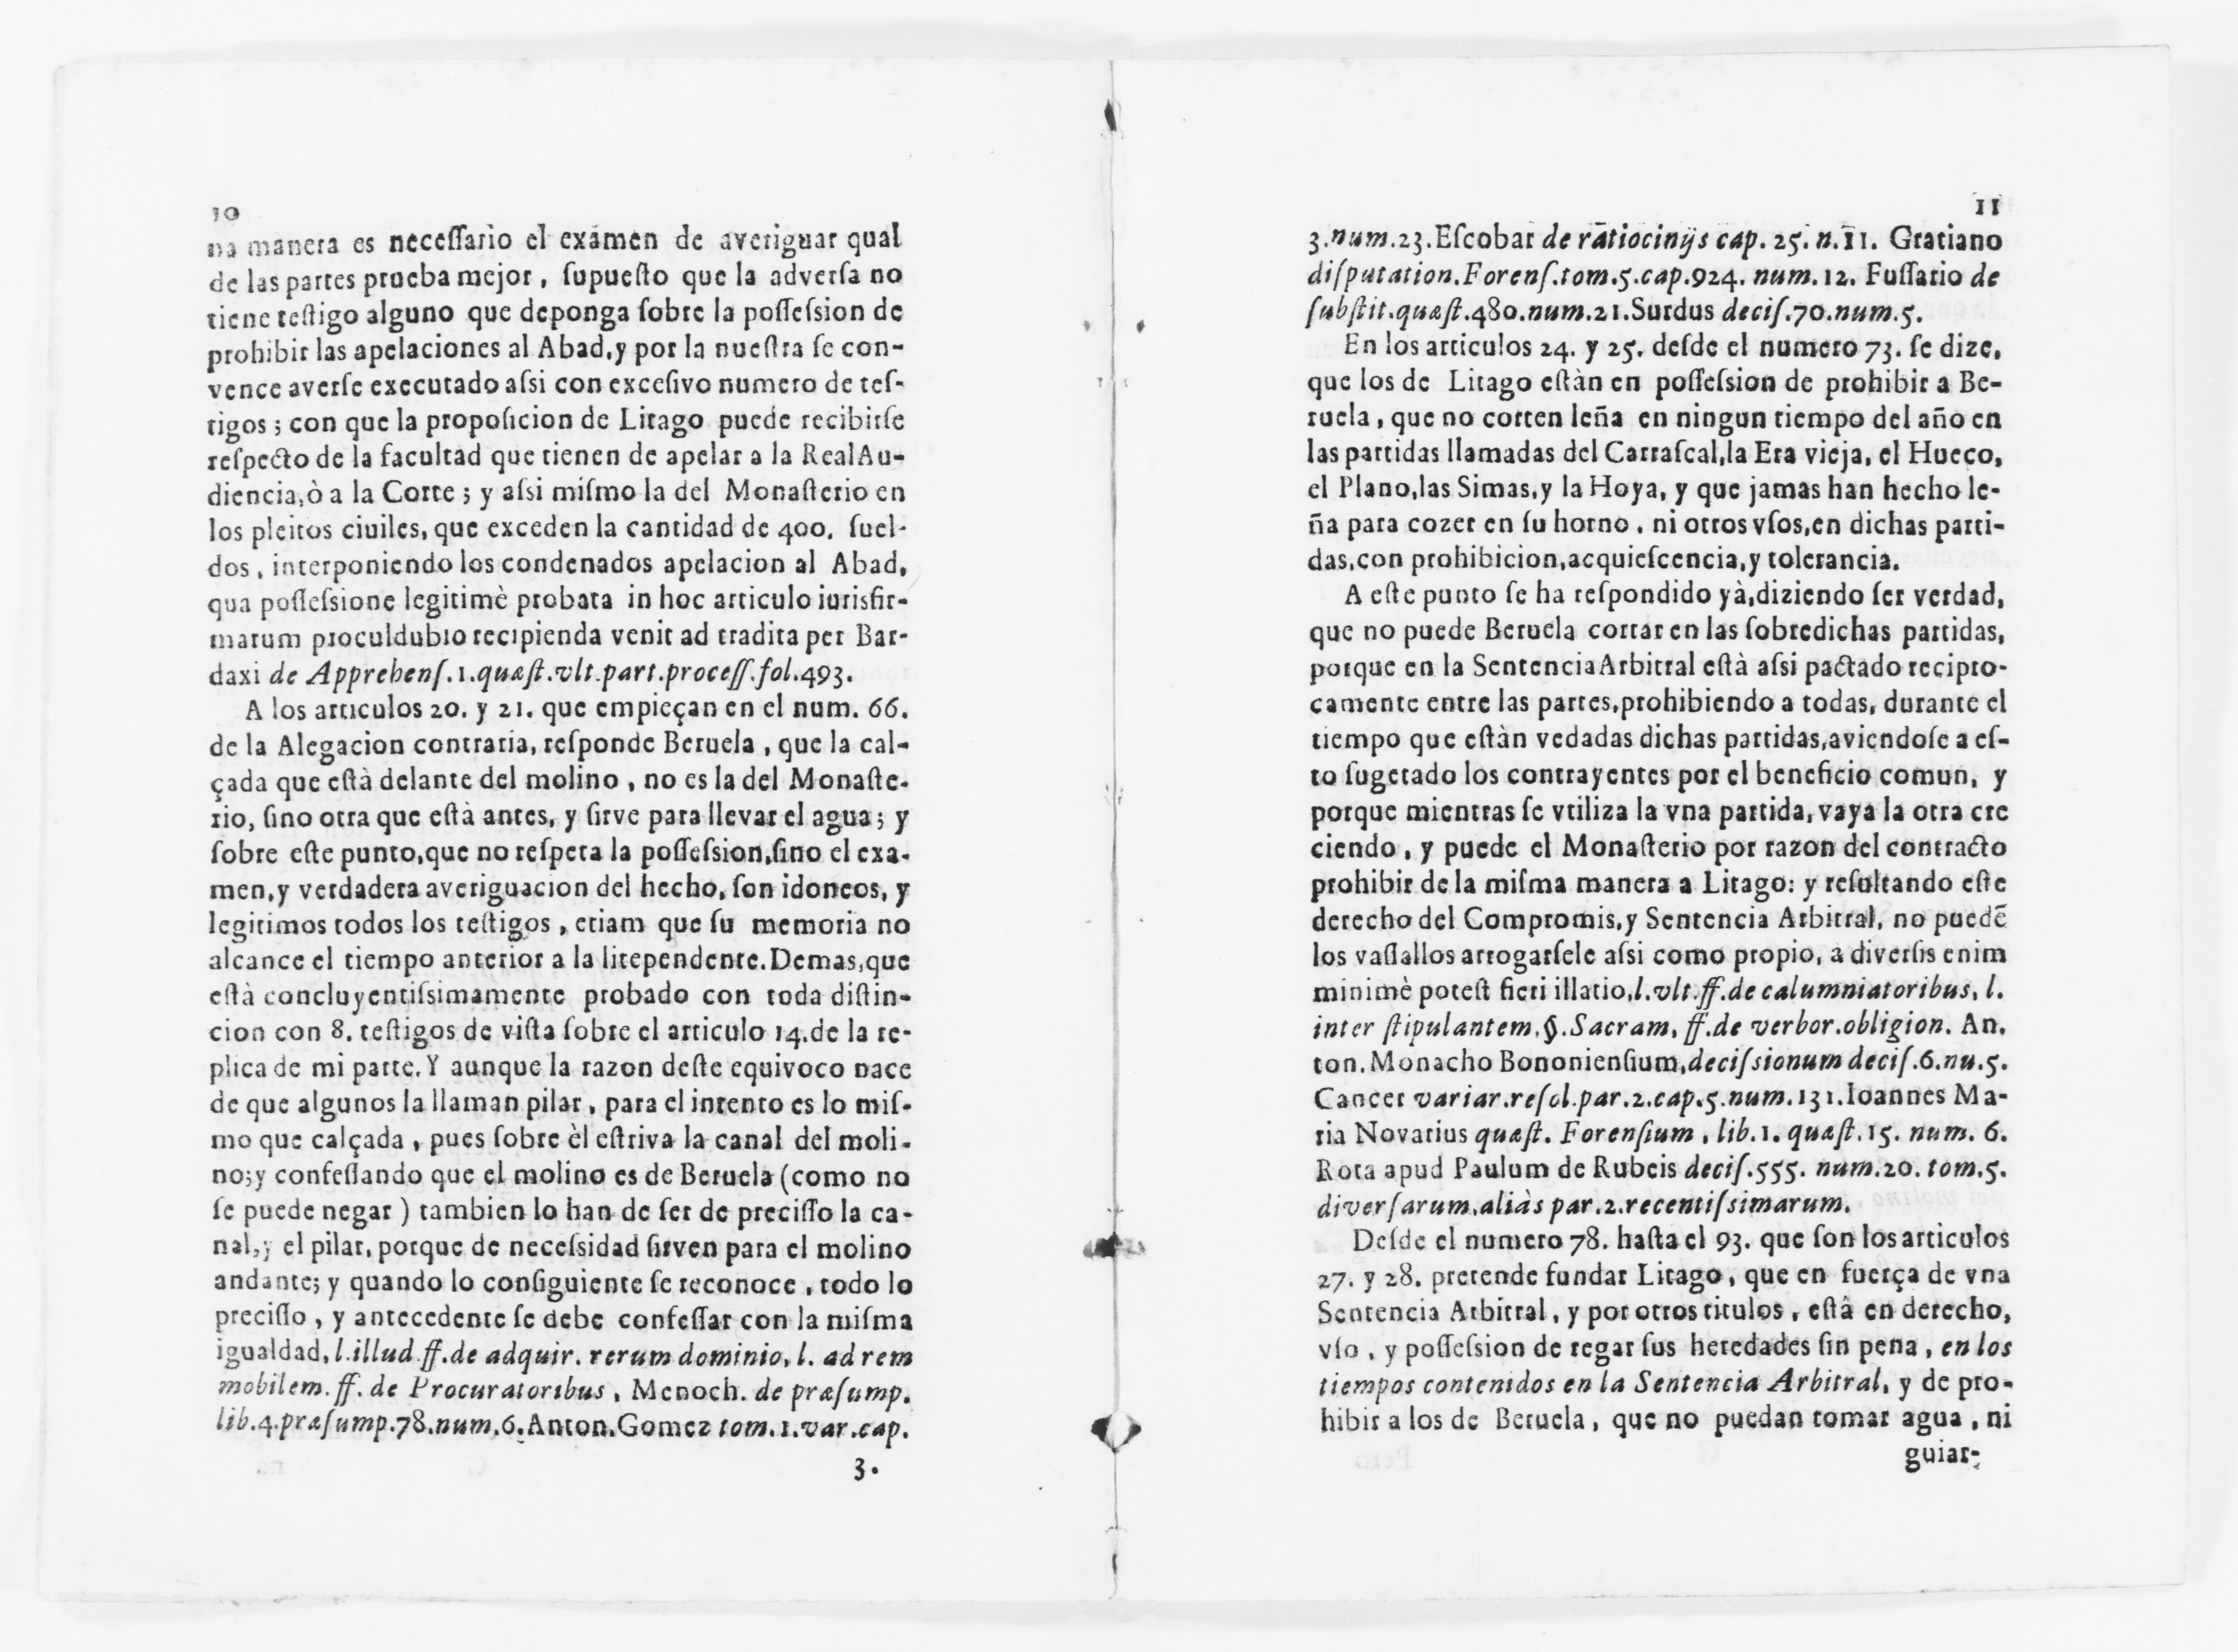 10
na manera es necessario el exámen de averiguar qual
de las partes prueba mejor, supuesto que la adversa no
tiene testigo alguno que deponga sobre la possession de
prohibir las apelaciones al Abad, y por la nuestra se con-
vence averse executado assi con excesivo numero de tes-
tigos; con que la proposicion de Litago puede recibirse
respecto de la facultad que tienen de apelar a la Real Au-
diencia, ò a la Corte; y assi mismo la del Monasterio en
los pleitos ciuiles, que exceden la cantidad de 400. suel-
dos, interponiendo los condenados apelacion al Abad,
qua possessione legitimè probata in hoc articulo iurisfir-
marum proculdubio recipienda venit ad tradita per Bar-
daxi de Apprehens. 1. quæst. vlt. part. process. fol. 493.
A los articulos 20. y 21. que empieçan en el num. 66.
de la Alegacion contraria, responde Beruela, que la cal-
çada que està delante del molino, no es la del Monaste-
rio, sino otra que està antes, y sirve para llevar el agua; y
sobre este punto, que no respeta la possession, sino el exa-
men, y verdadera averiguacion del hecho, son idoneos, y
legitimos todos los testigos, etiam que su memoria no
alcance el tiempo anterior a la litependente. Demas, que
està concluyentissimamente probado con toda distin-
cion con 8. testigos de vista sobre el articulo 14. de la re-
plica de mi parte. Y aunque la razon deste equivoco nace
de que algunos la llaman pilar, para el intento es lo mis-
mo que calçada, pues sobre èl estriva la canal del moli-
no; y confessando que el molino es de Beruela (como no
se puede negar) tambien lo han de ser de precisso la ca-
nal, y el pilar, porque de necessidad sirven para el molino
andante; y quando lo consiguiente se reconoce, todo lo
precisso, y antecedente se debe confessar con la misma
igualdad, l. illud ff. de adquir. rerum dominio, l. ad rem
mobilem. ff. de Procuratoribus, Menoch. de præsump.
lib. 4. præsump. 78. num. 6. Anton. Gomez tom. 1. var. cap.
3.
11
3. num. 23. Escobar de ratiocinijs cap. 25. n. 11. Gratiano
disputation. Forens. tom. 5. cap. 924. num. 12. Fussario de
substit. quæst. 480. num. 21. Surdus decis. 70. num. 5.
En los articulos 24. y 25. desde el numero 73. se dize,
que los de Litago estàn en possession de prohibir a Be-
ruela, que no corten leña en ningun tiempo del año en
las partidas llamadas del Carrascal, la Era vieja, el Hueço,
el Plano, las Simas, y la Hoya, y que jamas han hecho le-
ña para cozer en su horno, ni otros vsos, en dichas parti-
das, con prohibicion, acquiescencia, y tolerancia.
A este punto se ha respondido yà, diziendo ser verdad,
que no puede Beruela cortar en las sobredichas partidas,
porque en la Sentencia Arbitral està assi pactado recipro-
camente entre las partes, prohibiendo a todas, durante el
tiempo que estàn vedadas dichas partidas, aviendose a es-
to sugetado los contrayentes por el beneficio comun, y
porque mientras se vtiliza la vna partida, vaya la otra cre
ciendo, y puede el Monasterio por razon del contracto
prohibir de la misma manera a Litago: y resultando este
derecho del Compromis, y Sentencia Arbitral, no puedẽ
los vassallos arrogarsele assi como propio, à diversis enim
minimè potest fieri illatio, l. vlt. ff. de calumniatoribus, l.
inter stipulantem, §. Sacram, ff. de verbor. obligion. An.
ton. Monacho Bononiensium, decissionum decis. 6. nu. 5.
Cancer variar. resol. par. 2. cap. 5. num. 131. Ioannes Ma-
ria Novarius quæst. Forensium, lib. 1. quæst. 15. num. 6.
Rota apud Paulum de Rubeis decis. 555. num. 20. tom. 5.
diversarum, aliàs par. 2. recentissimarum.
Desde el numero 78. hasta el 93. que son los articulos
27. y 28. pretende fundar Litago, que en fuerça de vna
Sentencia Arbitral, y por otros titulos, està en derecho,
vso, y possession de regar sus heredades sin pena, en los
tiempos contenidos en la Sentencia Arbitral, y de pro-
hibir a los de Beruela, que no puedan tomar agua, ni
guiar-